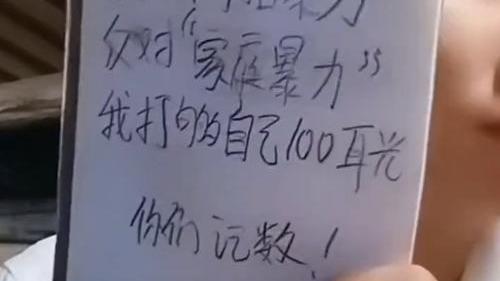 力
反对“家庭暴力”
我打自己100耳光
你们记数!